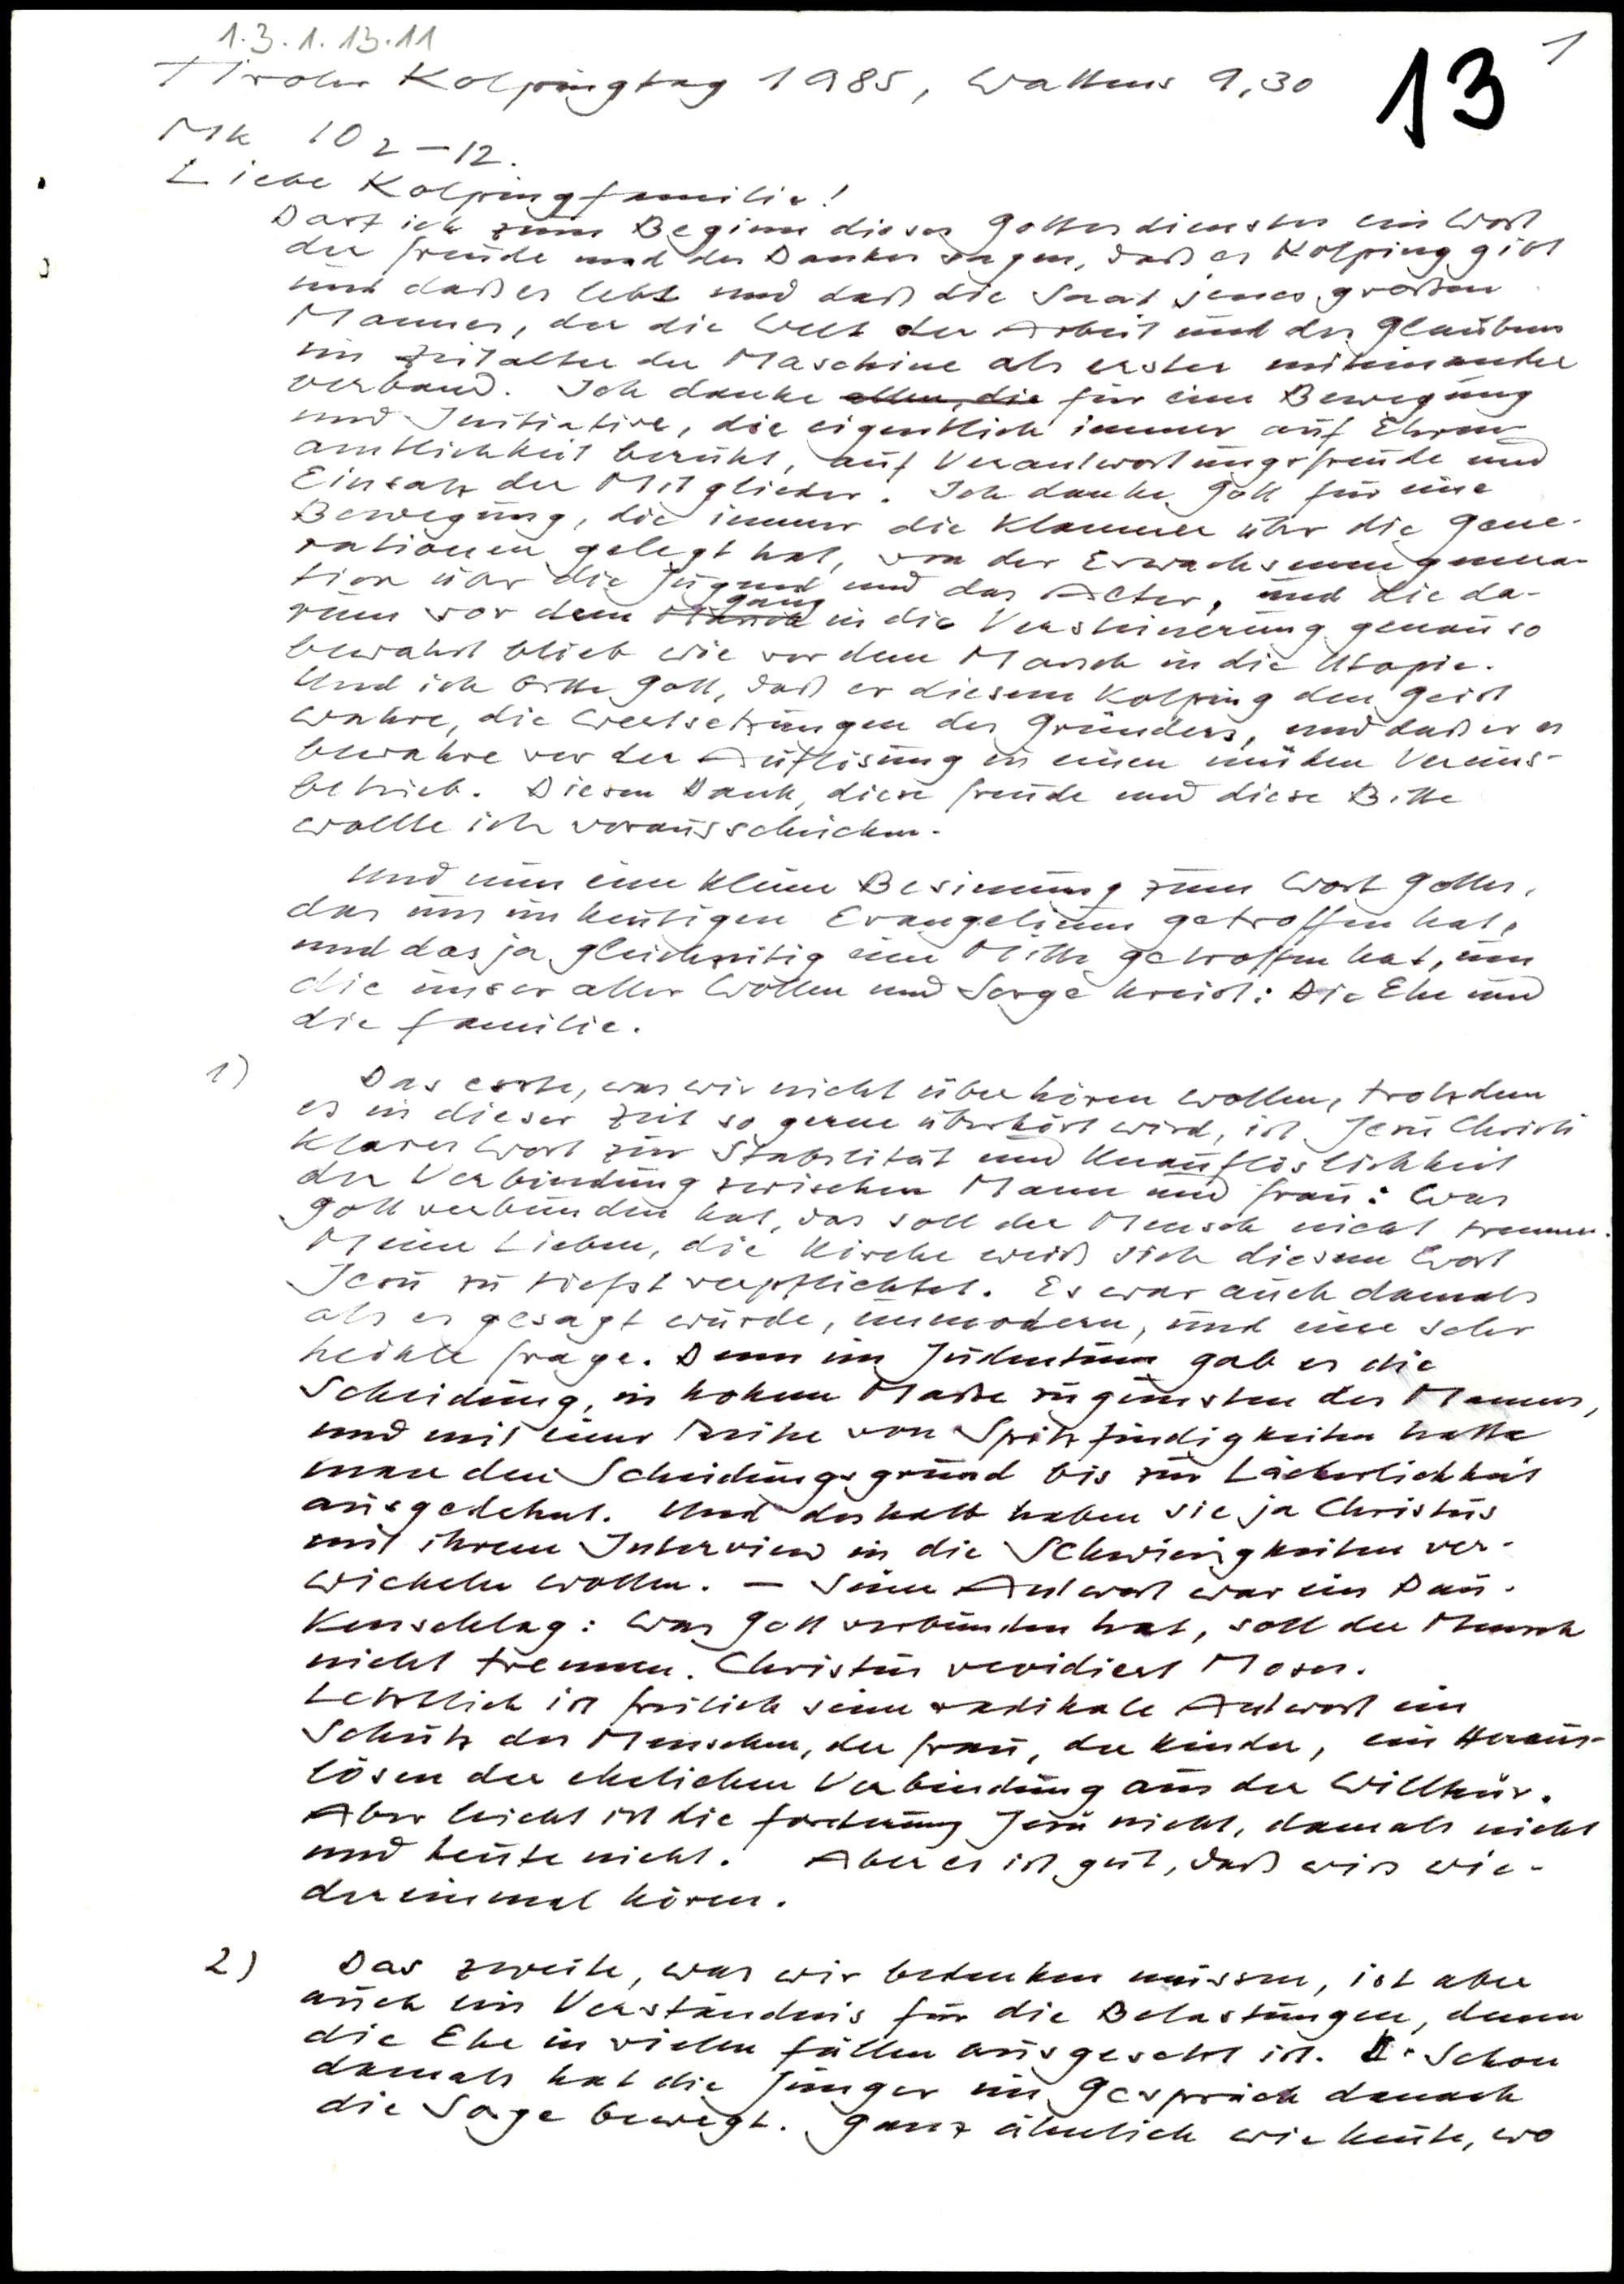 1.3.1.13.11
1
13
Tiroler Kolpingtag 1985, Wattens 9,30
Mk 10 2-12.
Liebe Kolpingfamilie!
Darf ich zum Beginn dieses Gottesdienstes ein Wort
der Freude und des Dankes sagen, daß es Kolping gibt
und daß es lebt und daß die Saat jenes großen
Mannes, der die Welt der Arbeit und des Glaubens
im Zeitalter der Maschine als erster miteinander
verband. Ich danke allen, die für eine Bewegung
und Initiative, die eigentlich immer auf Ehren-
amtlichkeit beruht, auf Verantwortungsfreude und
Einsatz der Mitglieder. Ich danke Gott für eine
Bewegung, die immer die Klammer über die Gene-
rationen gelegt hat, von der Erwachsenengenera-
tion über die Jugend und das Alter, und die da-
gang
rum vor dem Marsch in die Versteinerung genau so
bewahrt blieb wie vor dem Marsch in die Utopie.
Und ich bitte Gott, daß er diesem Kolping den Geist
wahre, die Wertsetzungen des Gründers, und daß er es
bewahre vor der Auflösung in einen müden Vereins-
betrieb. Diesen Dank, diese Freude und diese Bitte
wollte ich vorausschicken.
Und nun eine kleine Besinnung zum Wort Gottes,
das uns im heutigen Evangelium getroffen hat,
und das ja gleichzeitig eine Mitte getroffen hat, um
die unser aller Wollen und Sorge kreist: Die Ehe und
die Familie.
1) Das erste, was wir nicht überhören wollen, trotzdem
es in dieser Zeit so gerne überhört wird, ist Jesu Christi
klares Wort zur Stabilität und Unauflöslichkeit
der Verbindung zwischen Mann und Frau: Was
Gott verbunden hat, das soll der Mensch nicht trennen.
Meine Lieben, die Kirche weiß sich diesem Wort
Jesu zu tiefst verpflichtet. Es war auch damals
als es gesagt wurde, unmodern, und eine sehr
heikle Frage. Denn im Judentum gab es die
Scheidung, in hohem Maße zugunsten des Mannes,
und mit einer Reihe von Spitzfindigkeiten hatte
man den Scheidungsgrund bis zur Lächerlichkeit
ausgedehnt. Und deshalb haben sie ja Christus
mit ihrem Interview in die Schwierigkeiten ver-
wickeln wollen. – Seine Antwort war ein Pau-
kenschlag: Was Gott verbunden hat, soll der Mensch
nicht trennen. Christus revidiert Moses.
Letztlich ist freilich seine radikale Antwort ein
Schutz des Menschen, der Frau, der Kinder, ein Heraus-
lösen der ehelichen Verbindung aus der Willkür.
Aber leicht ist die Forderung Jesu nicht, damals nicht
und heute nicht. Aber es ist gut, daß wirs wie-
dereinmal hören.
2) Das zweite, was wir bedenken müssen, ist aber
auch ein Verständnis für die Belastungen, denen
die Ehe in vielen Fällen ausgesetzt ist. Schon
damals hat die Jünger im Gespräch danach
die Sorge bewegt. Ganz ähnlich wie heute, wo